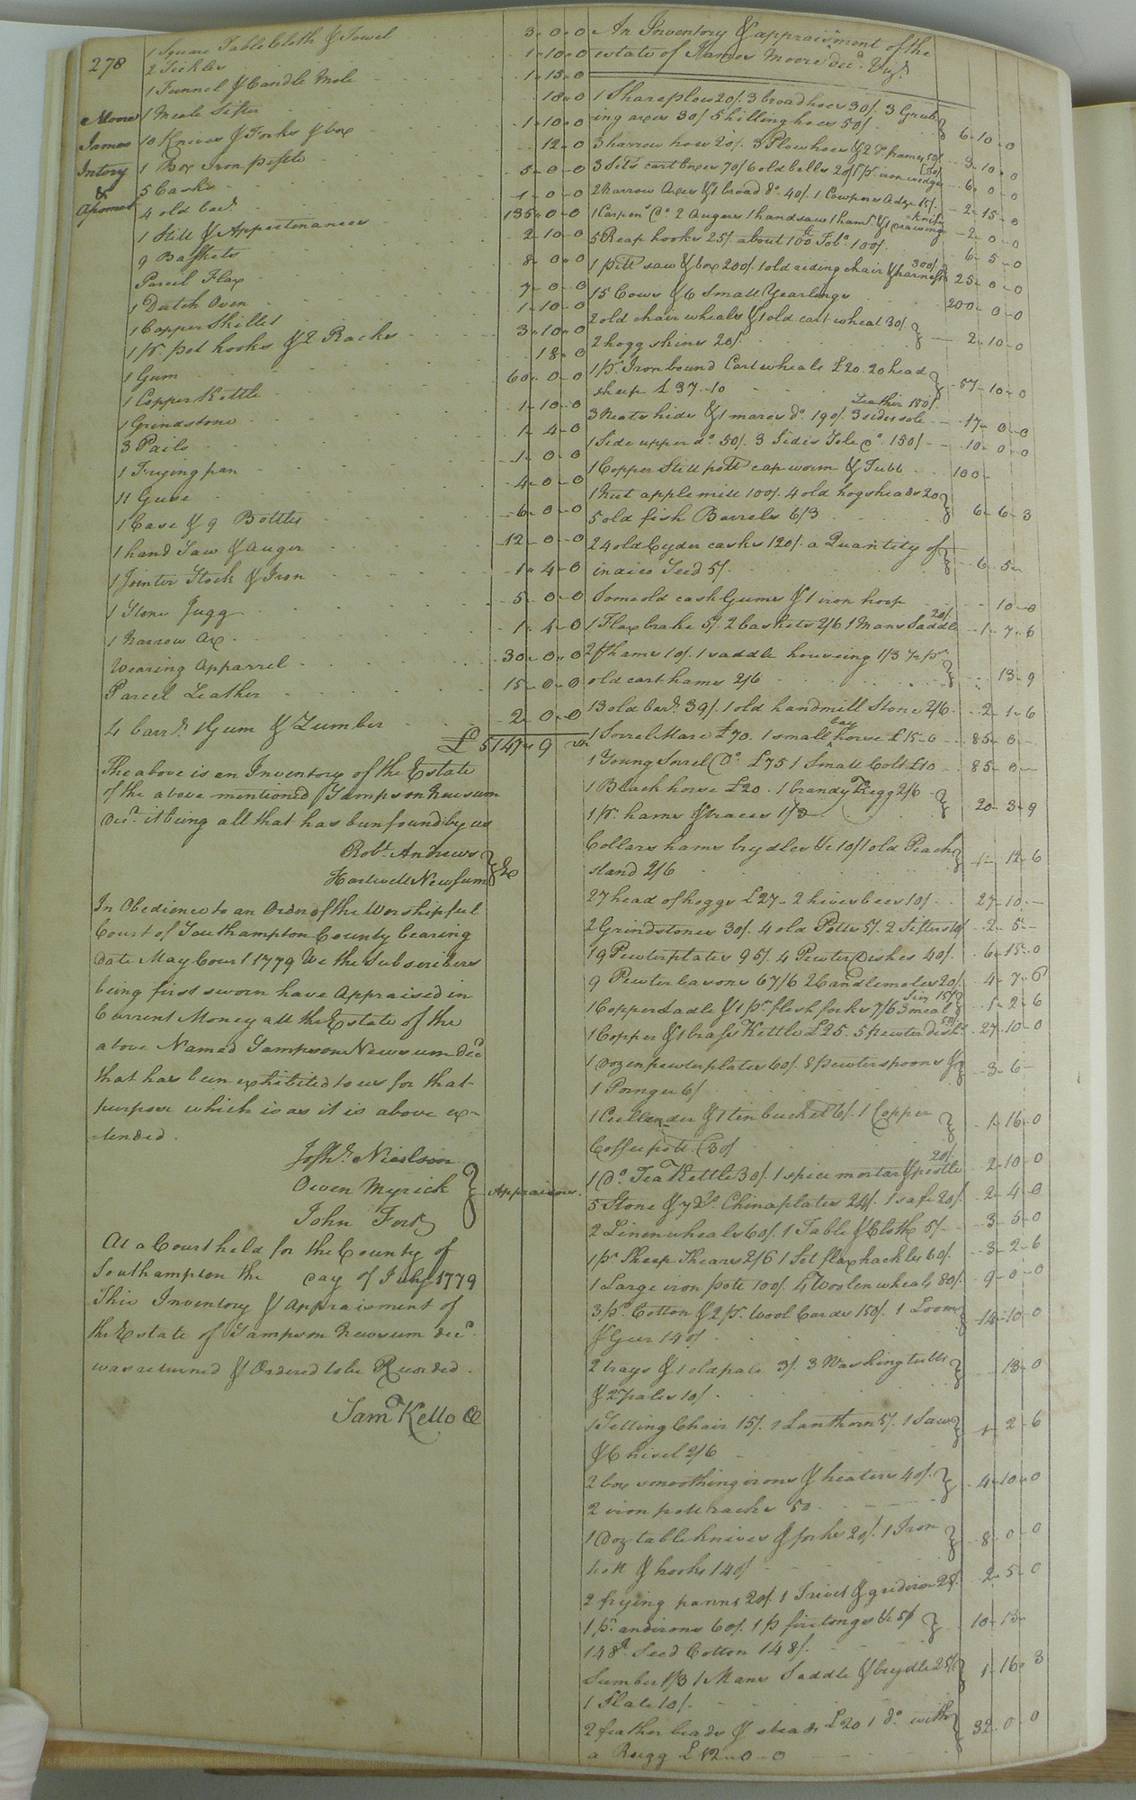 278
Moore
James
Intory
&
Apsment
1 Square Table Cloth & Towel 3-0-0
2 Sickles 1-10-0
1 Funnel & Candle Mole 1-15-0
1 Meale Sifter 18-0
10 Knives & Forks & box 1-10-0
1 Box Iron pestle 12-0
5 Casks 5-0-0
4 old bar.s 1-0-0
1 Still & Appertenances 135-0-0
9 Baskets 2-10-0
Parcel Flax 8-0-0
1 Dutch Oven 7-0-0
1 Copper Skillet 1-10-0
1 pr. pot hooks & 2 Racks 3-10-0
1 Gum 18-0
1 Copper Kettle 60-0-0
1 Grindstone 1-10-0
3 Pails 1-4-0
1 Frying pan 1-0-0
11 Geese 4-0-0
1 Case & 9 Bottles 6-0-0
1 hand Saw & Auger 12-0-0
1 Jointer Stock & Iron 1-4-0
1 Stone Jugg 5-0-0
1 Narrow Ax 1-4-0
Wearing Apparrel 30-0-0
Parcel Leather 15-0-0
4 barr.s 1 Gum & Lumber 2-0-0
£ 5147-9
The above is an Inventory of the Estate
of the above mentioned Sampson Newsum
Dec.d it being all that has been found by us
Rob.t Andrews
Hartwell Newsum
In Obedience to an Order of the Worshipful
Court of Southampton County bearing
Date May Court 1779 We the Subscribers
being first sworn have Appraised in
Current Money all the Estate of the
above Named Sampson Newsum Dec.d
that has been exhibited to us for that
purpose which is as it is above ex-
-tended.
Josh.a Nicolson
Owen Myrick Appraisers.
John Fort
At a Court held for the County of
Southampton the day of July 1779
This Inventory & Appraisment of
the Estate of Sampson Newsum Dec.d
was returned & Ordered to be Recorded.
Sam.l Kello
An Inventory & appraisment of the
estate of James Moore Dec.d Viz.t
1 Share plow 20/. 3 broad hoes 30/. 3 Grub-
ing axes 30/ 5 hilling hoes 50/ 6-10-0
3 harrow hows 20/. 3 Plow hoes & 2 Do. frames 50/ 3-10-0
3 Sets cart boxes 70/ 6 old bells 20/ 1 pr. iron wedges 6-0-0
2 Narrow Axes & 1 broad Do. 40/. 1 Coopers Adze 15/. 2-15-0
1 Carpen.s Do. 2 Augers 1 handsaw 1 ham.r & 1 drawing knife 2-0-0
5 Reap hooks 25/. about 100 lb Tob.o 100/. 6-5-0
1 pitt saw & box 200/. 1 old riding chair & harness 300/. 25-0-0
15 Cows & 6 Small Yearlings 200-0-0
2 old chair wheals & 1 old cart wheat 30/.
2 hogg skins 20/. 2-10-0
1 pr. Iron bound Cart wheals £20. 20 head
sheep £37-10 57-10-0
3 Neats hide & 1 mares Do. 190/. 3 sides sole Leather 150/. 17-0-0
1 Side upper Do. 50/. 3 Sides Sole Do. 150/ 10-0-0
1 Copper Still pott cap worm & Tubb 100-
1 Nut apple mill 100/. 4 old hogsheads 20
5 old fish Barrels 6/3 6-6-3
24 old Cyder casks 120/. a Quantity of
indico Seed 5/. 6-5-
Some old cash Gums & 1 iron hoop 10-0
1 Flax brake 5/. 2 baskets 2/6 1 Mans Saddle 20/. 1-7-6
2 pr hams 10/. 1 saddle houseing 1/3 7 pr.
old cart hams 2/6 13-9
13 old bar.s 39/. 1 old handmill Stone 2/6 2-1-6
1 Sorrel Mare £70. 1 small bay horse £15-0 85-0-
1 Young Sorrel Do. £75 1 Small Colt £10 85-0-
1 Black horse £20. 1 brandy Kegg 2/6
1 pr. hams & traces 1/3 20-3-9
Collars hams brydles &c 10/ 1 old Peach
stand 2/6 12-6
27 head of hoggs £27-2 hives bees 10/. 27-10-
2 Grindstones 30/. 4 old Potts 5/. 2 Sifters 10/ 2-5-
19 Pewter plates 95/. 4 Pewter Dishes 40/. 6-15-0
9 Pewter basons 67/6 2 Candlemoles 20/. 4-7-6
1 Copper Ladle & 1 pr. flesh forks 7/6 3 meal Sive 15/ 1-2-6
1 Copper & 1 brass Kettle £25. 5 pewter dish.s 50/ 27-10-0
1 Dozen pewter plates 60/. 8 pewter spoons &
1 Poringer 6/ 3-6-
1 Cullander & 1 tin bucket 6/. 1 Copper
Coffee pott 30/ 1-16-0
1 Do. Tea Kettle 30/. 1 spice mortar & pestle 20/. 2-10-0
5 Stone & 7 Do. China plates 24/. 1 safe 20/. 2-4-0
2 Linen wheals 60/. 1 Table & Cloth 5/- 3-5-0
1 pr. Sheep Shears 2/6 1 Set flax hackles 60/. 3-2-6
1 Large iron pote 100/. 4 Woolen wheals 80/. 9-0-0
3 pr. Cotton & 2 pr. wool Cards 150/. 1 Loom
& Geer 140/ 14-10-0
2 trays & 1 old pale 3/. 3 Washing tubbs
& 2 pales 10/. 13-0
1 Setting Chair 15/. 1 Lanthorn 5/. 1 Saw
& Chisel 2/6 1-2-6
2 box smoothing irons & heaters 40/.
2 iron pott racks 50 4-10-0
1 Doz table knives & forks 20/. 1 Iron
pott & hooks 140/ 8-0-0
2 frying panns 20/. 1 Trivet & gridiron 25/. 2-5-0
1 pr. andirons 60/. 1 pr fire tongs &c 5/
148 lb. Seed Cotton 148/. 10-13-
Lumber 1/3 1 Mans Saddle & brydle 25/
1 Slate 10/. 1-16-3
2 feather beads & steads £20 1 Do. with
a Rugg £12-0-0 32-0-0